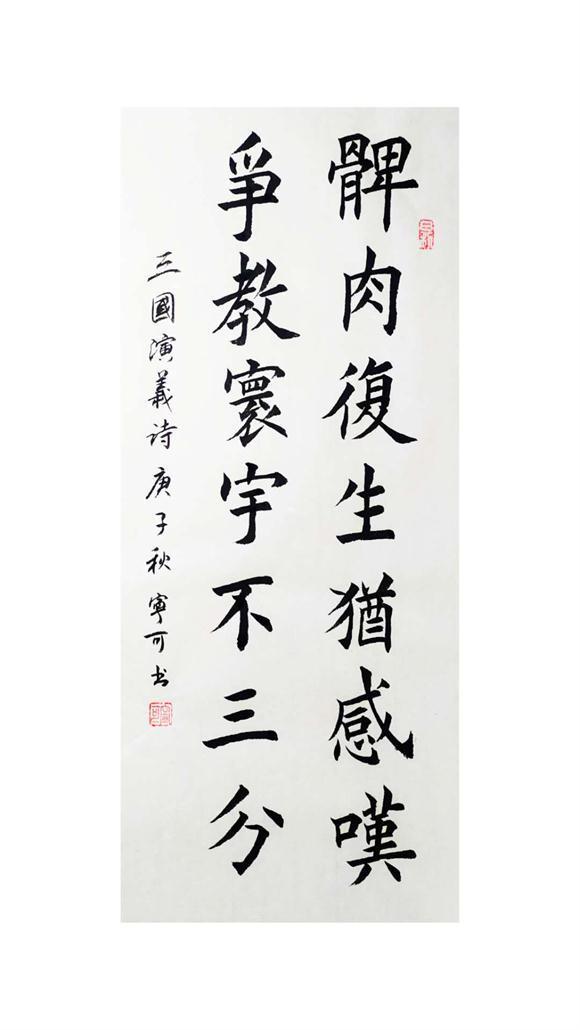 髀肉復生猶感嘆
爭教寰宇不三分
三國演義诗庚子秋寧可书